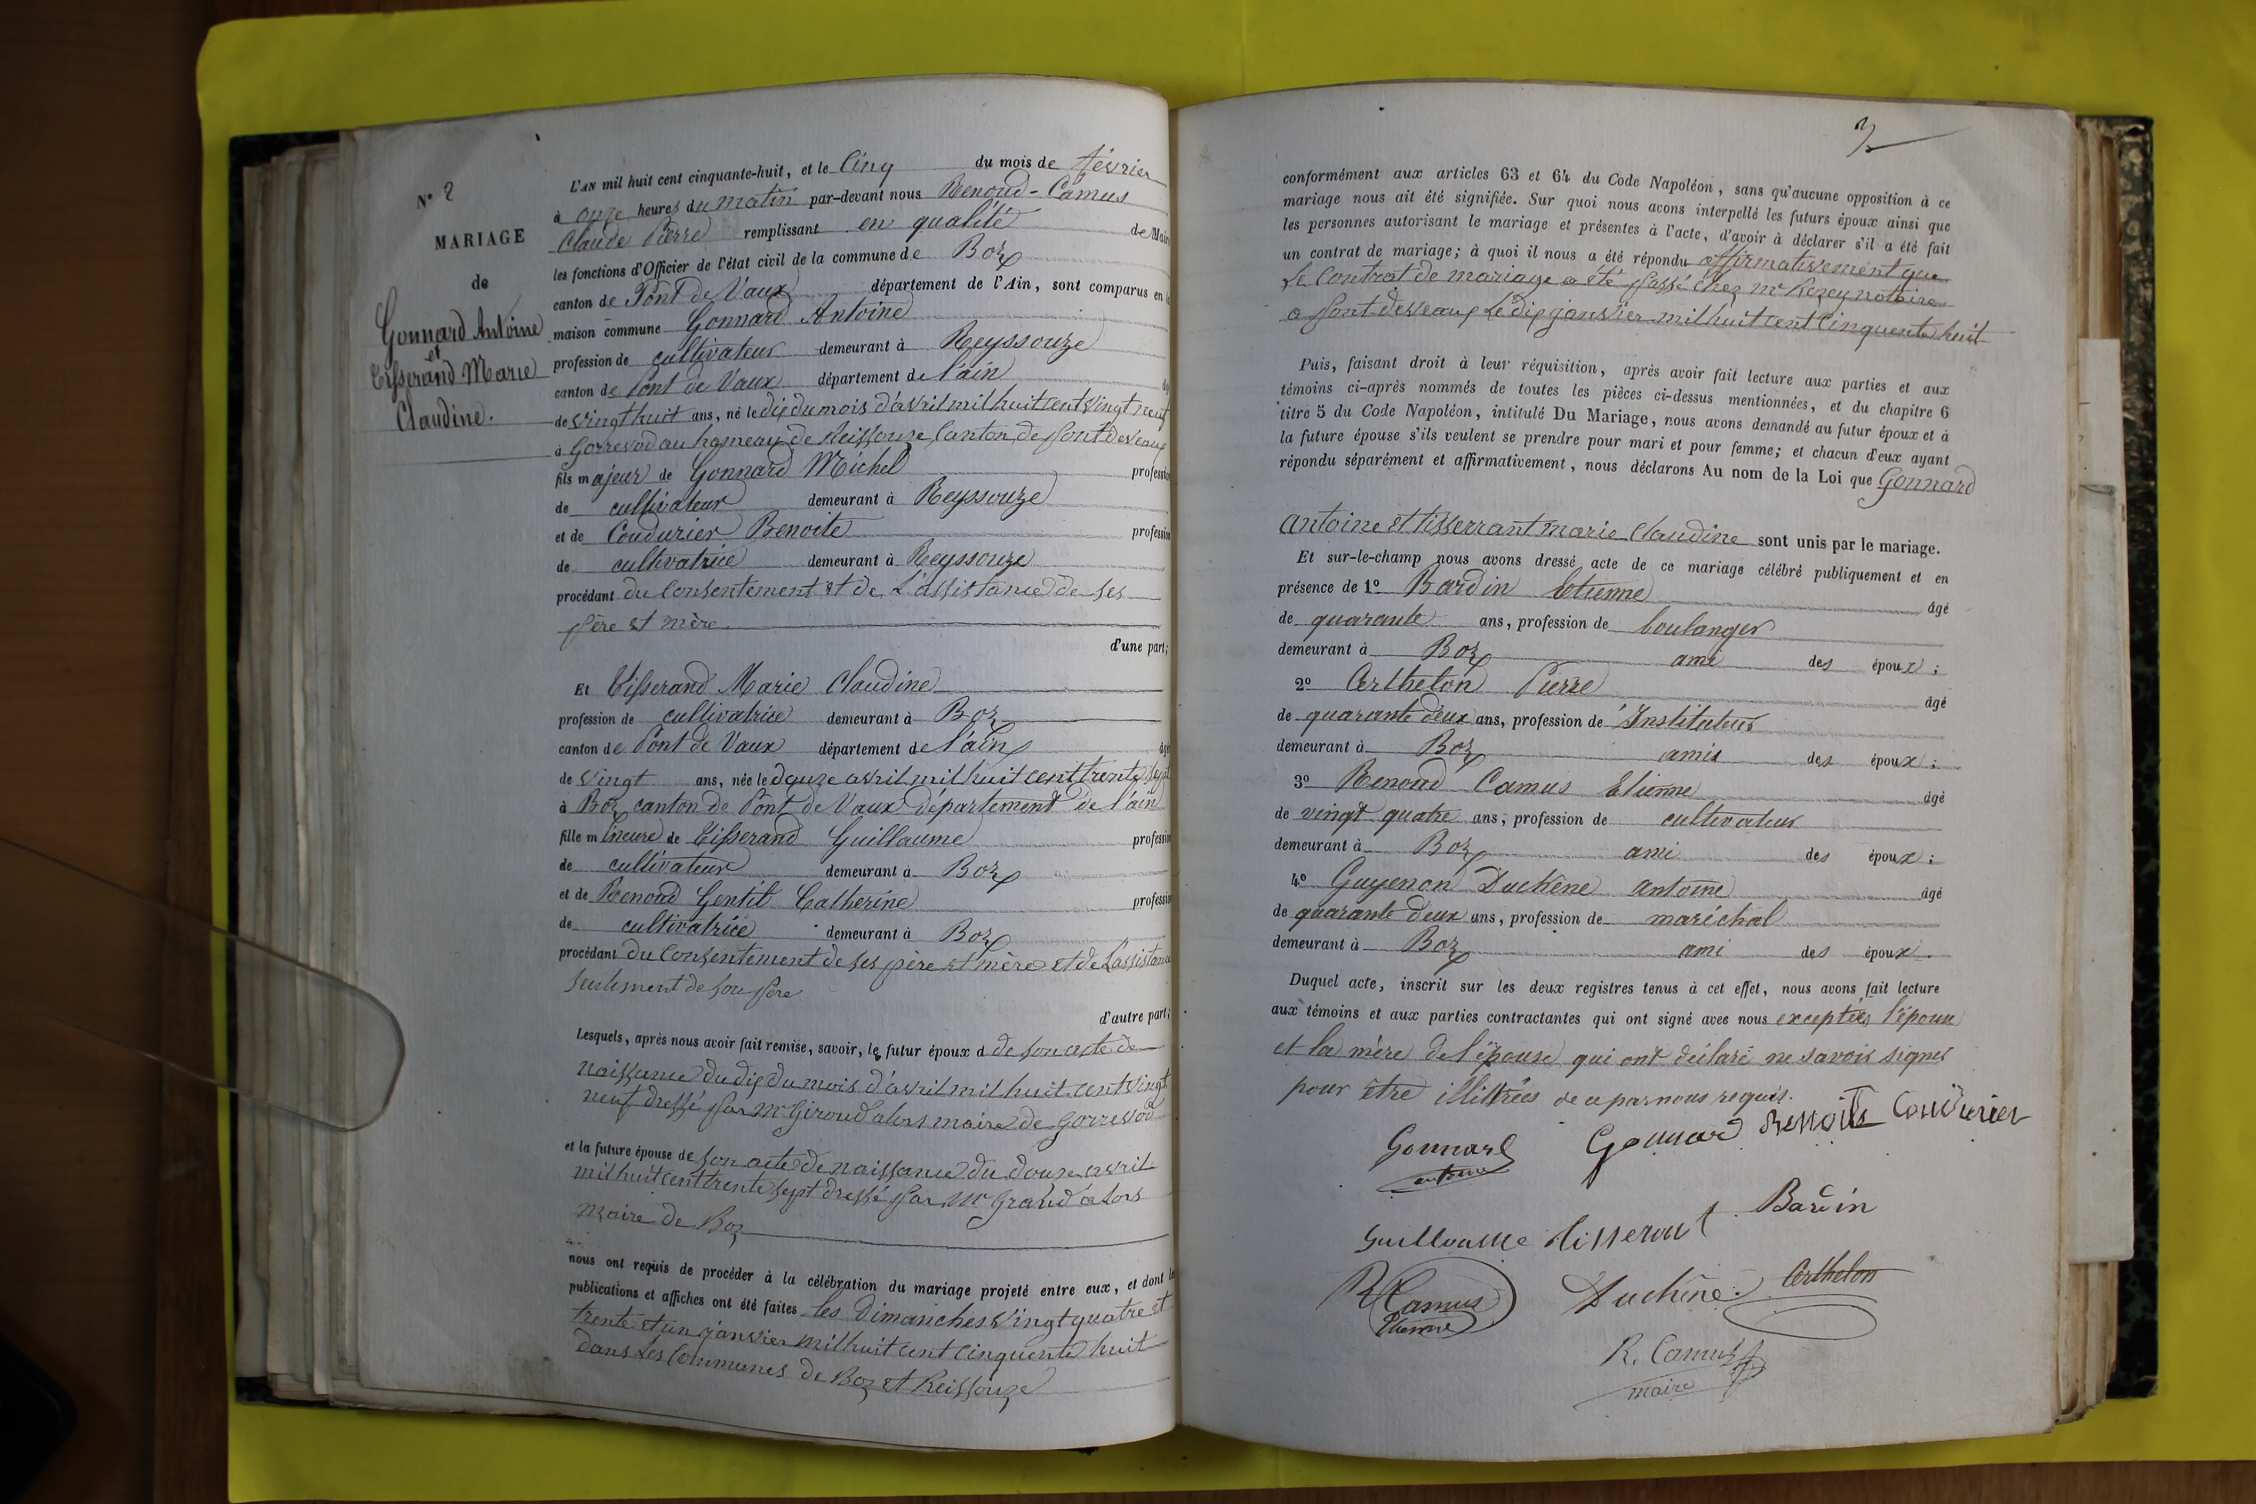 N° 2
MARIAGE
de
Gonnard Antoine
et
Tisserand Marie
Claudine.
L'AN mil huit cent cinquante-huit, et le Cinq du mois de février
à onze heures du matin par-devant nous Renoud-Camus
Claude Pierre remplissant en qualité de Maire
les fonctions d'Officier de l'état civil de la commune de Boz
canton de Pont de Vaux département de l'Ain, sont comparus en la
maison commune Gonnard Antoine
profession de cultivateur demeurant à Reyssouze
canton de Pont de Vaux département de l'ain âgé
de vingt huit ans, né le dix du mois d'avril mil huit cent vingt neuf
à Gorrevod au hameau de Reissouze Canton de Pont deveaux
fils majeur de Gonnard Michel profession
de cultivateur demeurant à Reyssouze
et de Coudurier Benoite profession
de cultivatrice demeurant à Reyssouze
procédant du Consentement et de L'assistance de ses
père et mère
d'une part;
Et Tisserand Marie Claudine
profession de cultivatrice demeurant à Boz
canton de Pont de Vaux département de l'ain âgée
de vingt ans, née le douze avril mil huit cent trente sept
à Boz canton de Pont de Vaux département de l'ain
fille mineure de Tisserand Guillaume profession
de cultivateur demeurant à Boz
et de Renoud Gentil Catherine profession
de cultivatrice demeurant à Boz
procédant du Consentement de ses père et mère et de Lassistance
seulement de son père
d'autre part;
Lesquels, après nous avoir fait remise, savoir, le futur époux d de son acte de
naissance du dix du mois d'avril mil huit cent vingt
neuf dressé par Mr Giroud alors maire de Gorrevod
et la future épouse de son acte de naissance du douze avril
mil huit cent trente sept dressé par Mr Grand alors
maire de Boz
nous ont requis de procéder à la célébration du mariage projeté entre eux, et dont les
publications et affiches ont été faites les Dimanches vingt quatre et
trente et un janvier mil huit cent cinquente huit
dans Les Communes de Boz et Reissouze
conformément aux articles 63 et 64 du Code Napoléon, sans qu'aucune opposition à ce
mariage nous ait été signifiée. Sur quoi nous avons interpellé les futurs époux ainsi que
les personnes autorisant le mariage et présentes à l'acte, d'avoir à déclarer s'il a été fait
un contrat de mariage; à quoi il nous a été répondu affirmativement que
Le Contrat de mariage a été passé chez mr notaire
a Pont deveaux Le dix janvier mil huit cent Cinquente huit
Puis, faisant droit à leur réquisition, après avoir fait lecture aux parties et aux
témoins ci-après nommés de toutes les pièces ci-dessus mentionnées, et du chapitre 6
titre 5 du Code Napoléon, intitulé Du Mariage, nous avons demandé au futur époux et à
la future épouse s'ils veulent se prendre pour mari et pour femme; et chacun d'eux ayant
répondu séparément et affirmativement, nous déclarons Au nom de la Loi que Gonnard
antoine et tisserrant marie Claudine sont unis par le mariage.
Et sur-le-champ nous avons dressé acte de ce mariage célébré publiquement et en
présence de 1° Bardin Etienne âgé
de quarante ans, profession de boulanger
demeurant à Boz ami des époux;
2° Arthelon Pierre âgé
de quarante deux ans, profession de Instituteur
demeurant à Boz amis des époux;
3° Renoud Camus Etienne âgé
de vingt quatre ans, profession de cultivateur
demeurant à Boz ami des époux;
4° Guyenon Duchêne antoine âgé
de quarante deux ans, profession de maréchal
demeurant à Boz ami des époux.
Duquel acte, inscrit sur les deux registres tenus à cet effet, nous avons fait lecture
aux témoins et aux parties contractantes qui ont signé avec nous exceptées l'épouse
et la mère de l'épouse qui ont déclaré ne savoir signer
pour être illitrées de ce par nous requis.
Gonnard Gonnard Benoite Coudurier
antoine
Bardin
Guillaume tisserant
R Camus Duchêne Arthelon
Etienne
R. Camus
maire